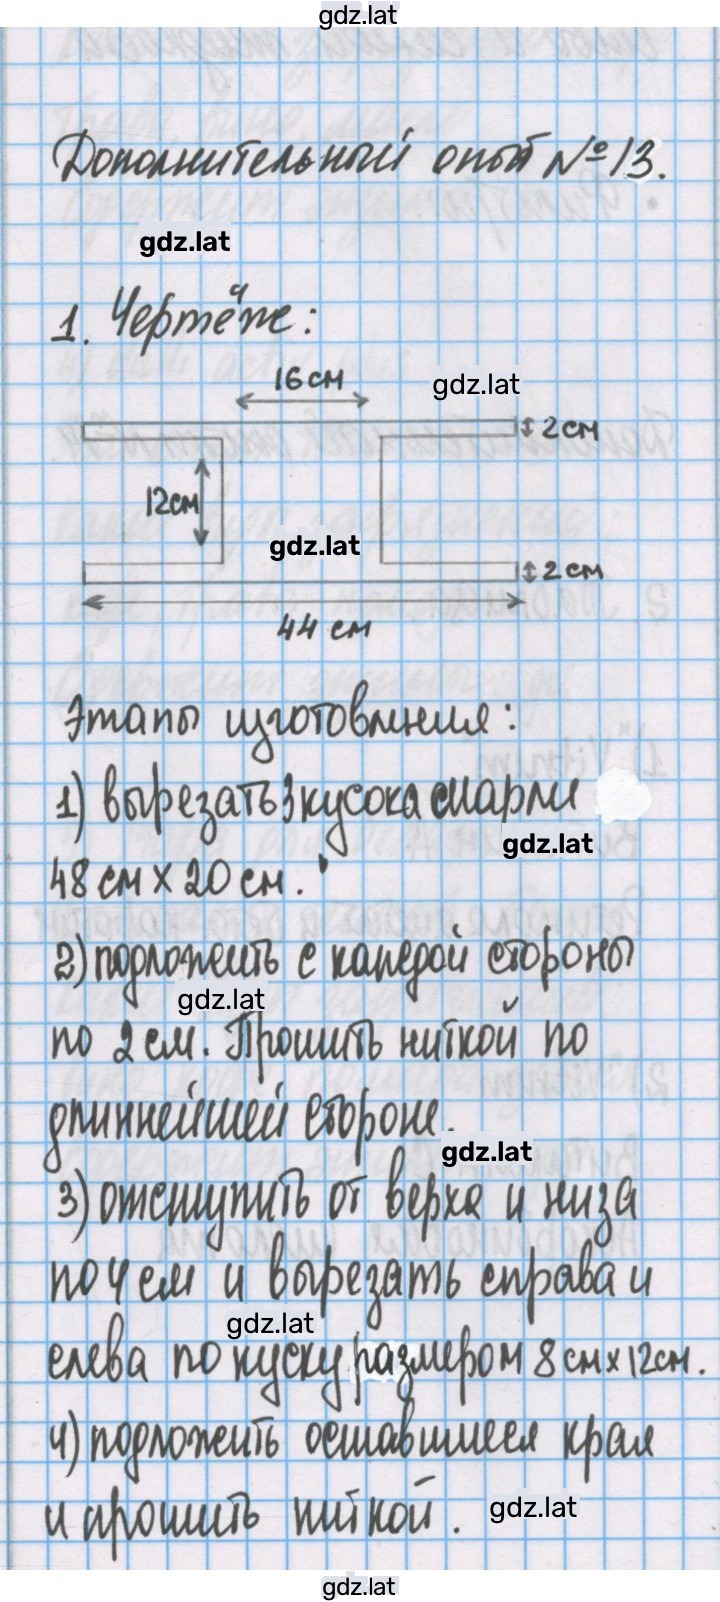 gdz.lat
Дополнительный опыт №13.
gdz.lat
1. Чертёж:
16см
gdz.lat
2см
12см
gdz.lat
2см
44 см
Этапы изготовления:
1) вырезать 3 кусока марли
gdz.lat
48 см х 20 см.
2) подложить с каждой стороны
gdz.lat
по 2 см. Прошить ниткой по
длиннейшей стороне.
gdz.lat
3) отступить от верха и низа
по 4 см и вырезать справа и
gdz.lat
слева по куску размером 8 см х 12см.
4) подложить оставшиеся края
и прошить ниткой.
gdz.lat
gdz.lat